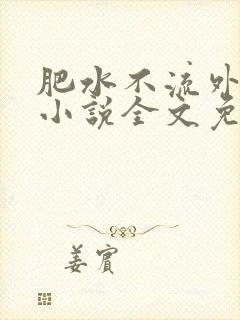 肥水不流外
小说全文免
姜宾